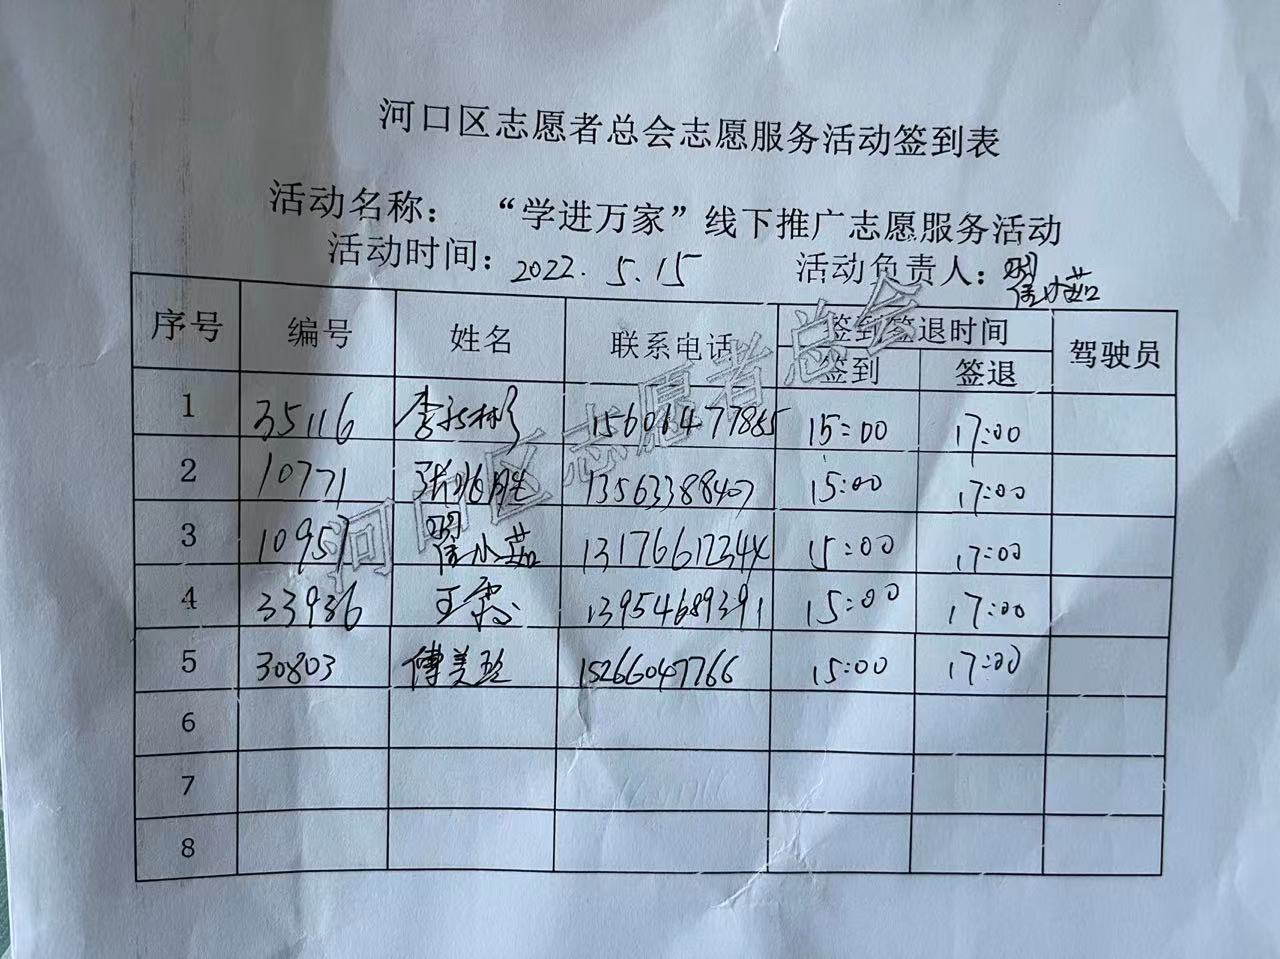 河口区志愿者总会志愿服务活动签到表
活动名称： “学进万家”线下推广志愿服务活动
活动时间：2022.5.15 活动负责人：翟小茹
序号 编号 姓名 联系电话 签到签退时间 驾驶员
签到 签退
1 35116 李 彬 15606477865 15:00 17:00
2 10771 张兆胜 13563388407 15:00 17:00
3 10957 翟小茹 1317661234X 15:00 17:00
4 33936 王 13954689391 15:00 17:00
5 30803 傅美玲 15266047766 15:00 17:00
6
7
8
河口区志愿者总会